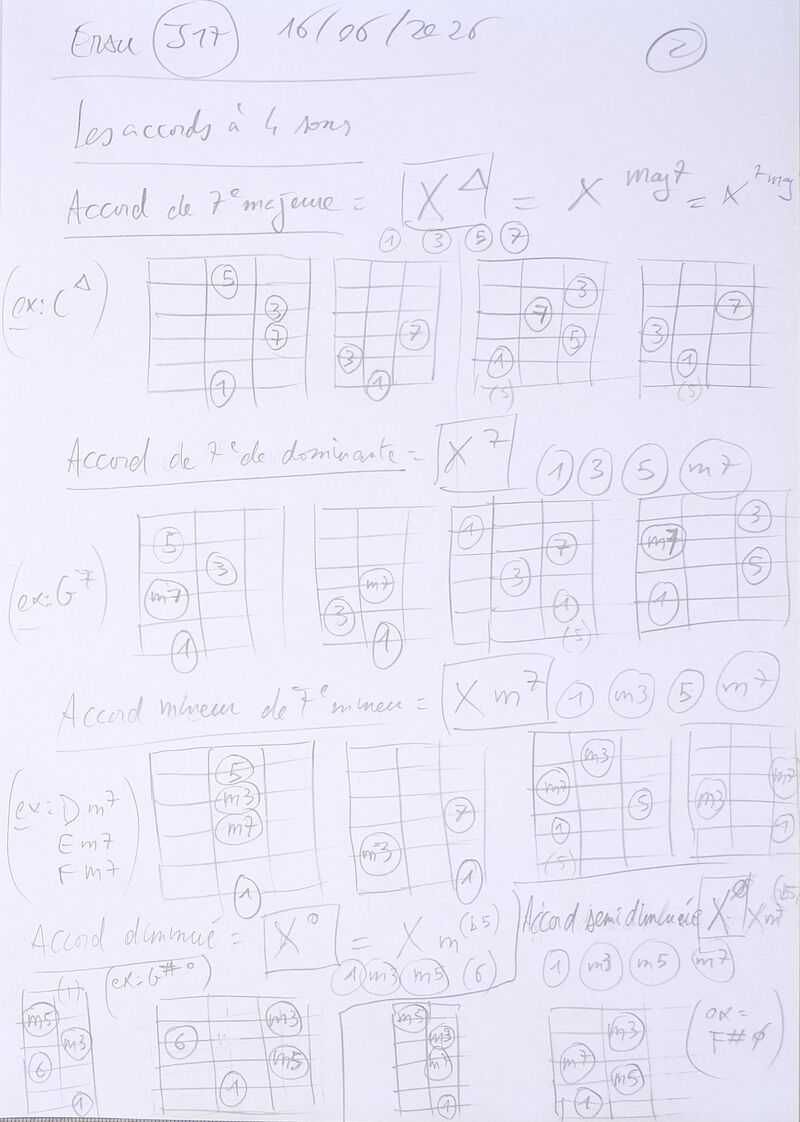 J17 16/06/2026
2
Les accords à 4 sons
Accord de 7e majeure = XΔ = X maj7 = X 7maj
1 3 5 7
(ex: CΔ)
5 3 7 1
7 3 1
3 7 5 1 (5)
7 3 1 (5)
Accord de 7e de dominante = X7 1 3 5 m7
(ex: G7)
5 3 m7 1
m7 3 1
1 7 3 1 (5)
3 m7 5 1
Accord mineur de 7e mineure = X m7 1 m3 5 m7
(ex: Dm7
Em7
Fm7)
5 m3 m7 1
7 m3 1
m3 m7 5 1 (5)
m7 m3 1
Accord diminué = X° = X m(b5)
1 m3 m5 (6)
(ex: G#°)
(1) m5 m3 6 1
m3 6 m5 1
Accord semi diminué X ø X m7(b5)
1 m3 m5 m7
m5 m3 m7 1
m3 m7 m5 1
(ex =
F# ø)